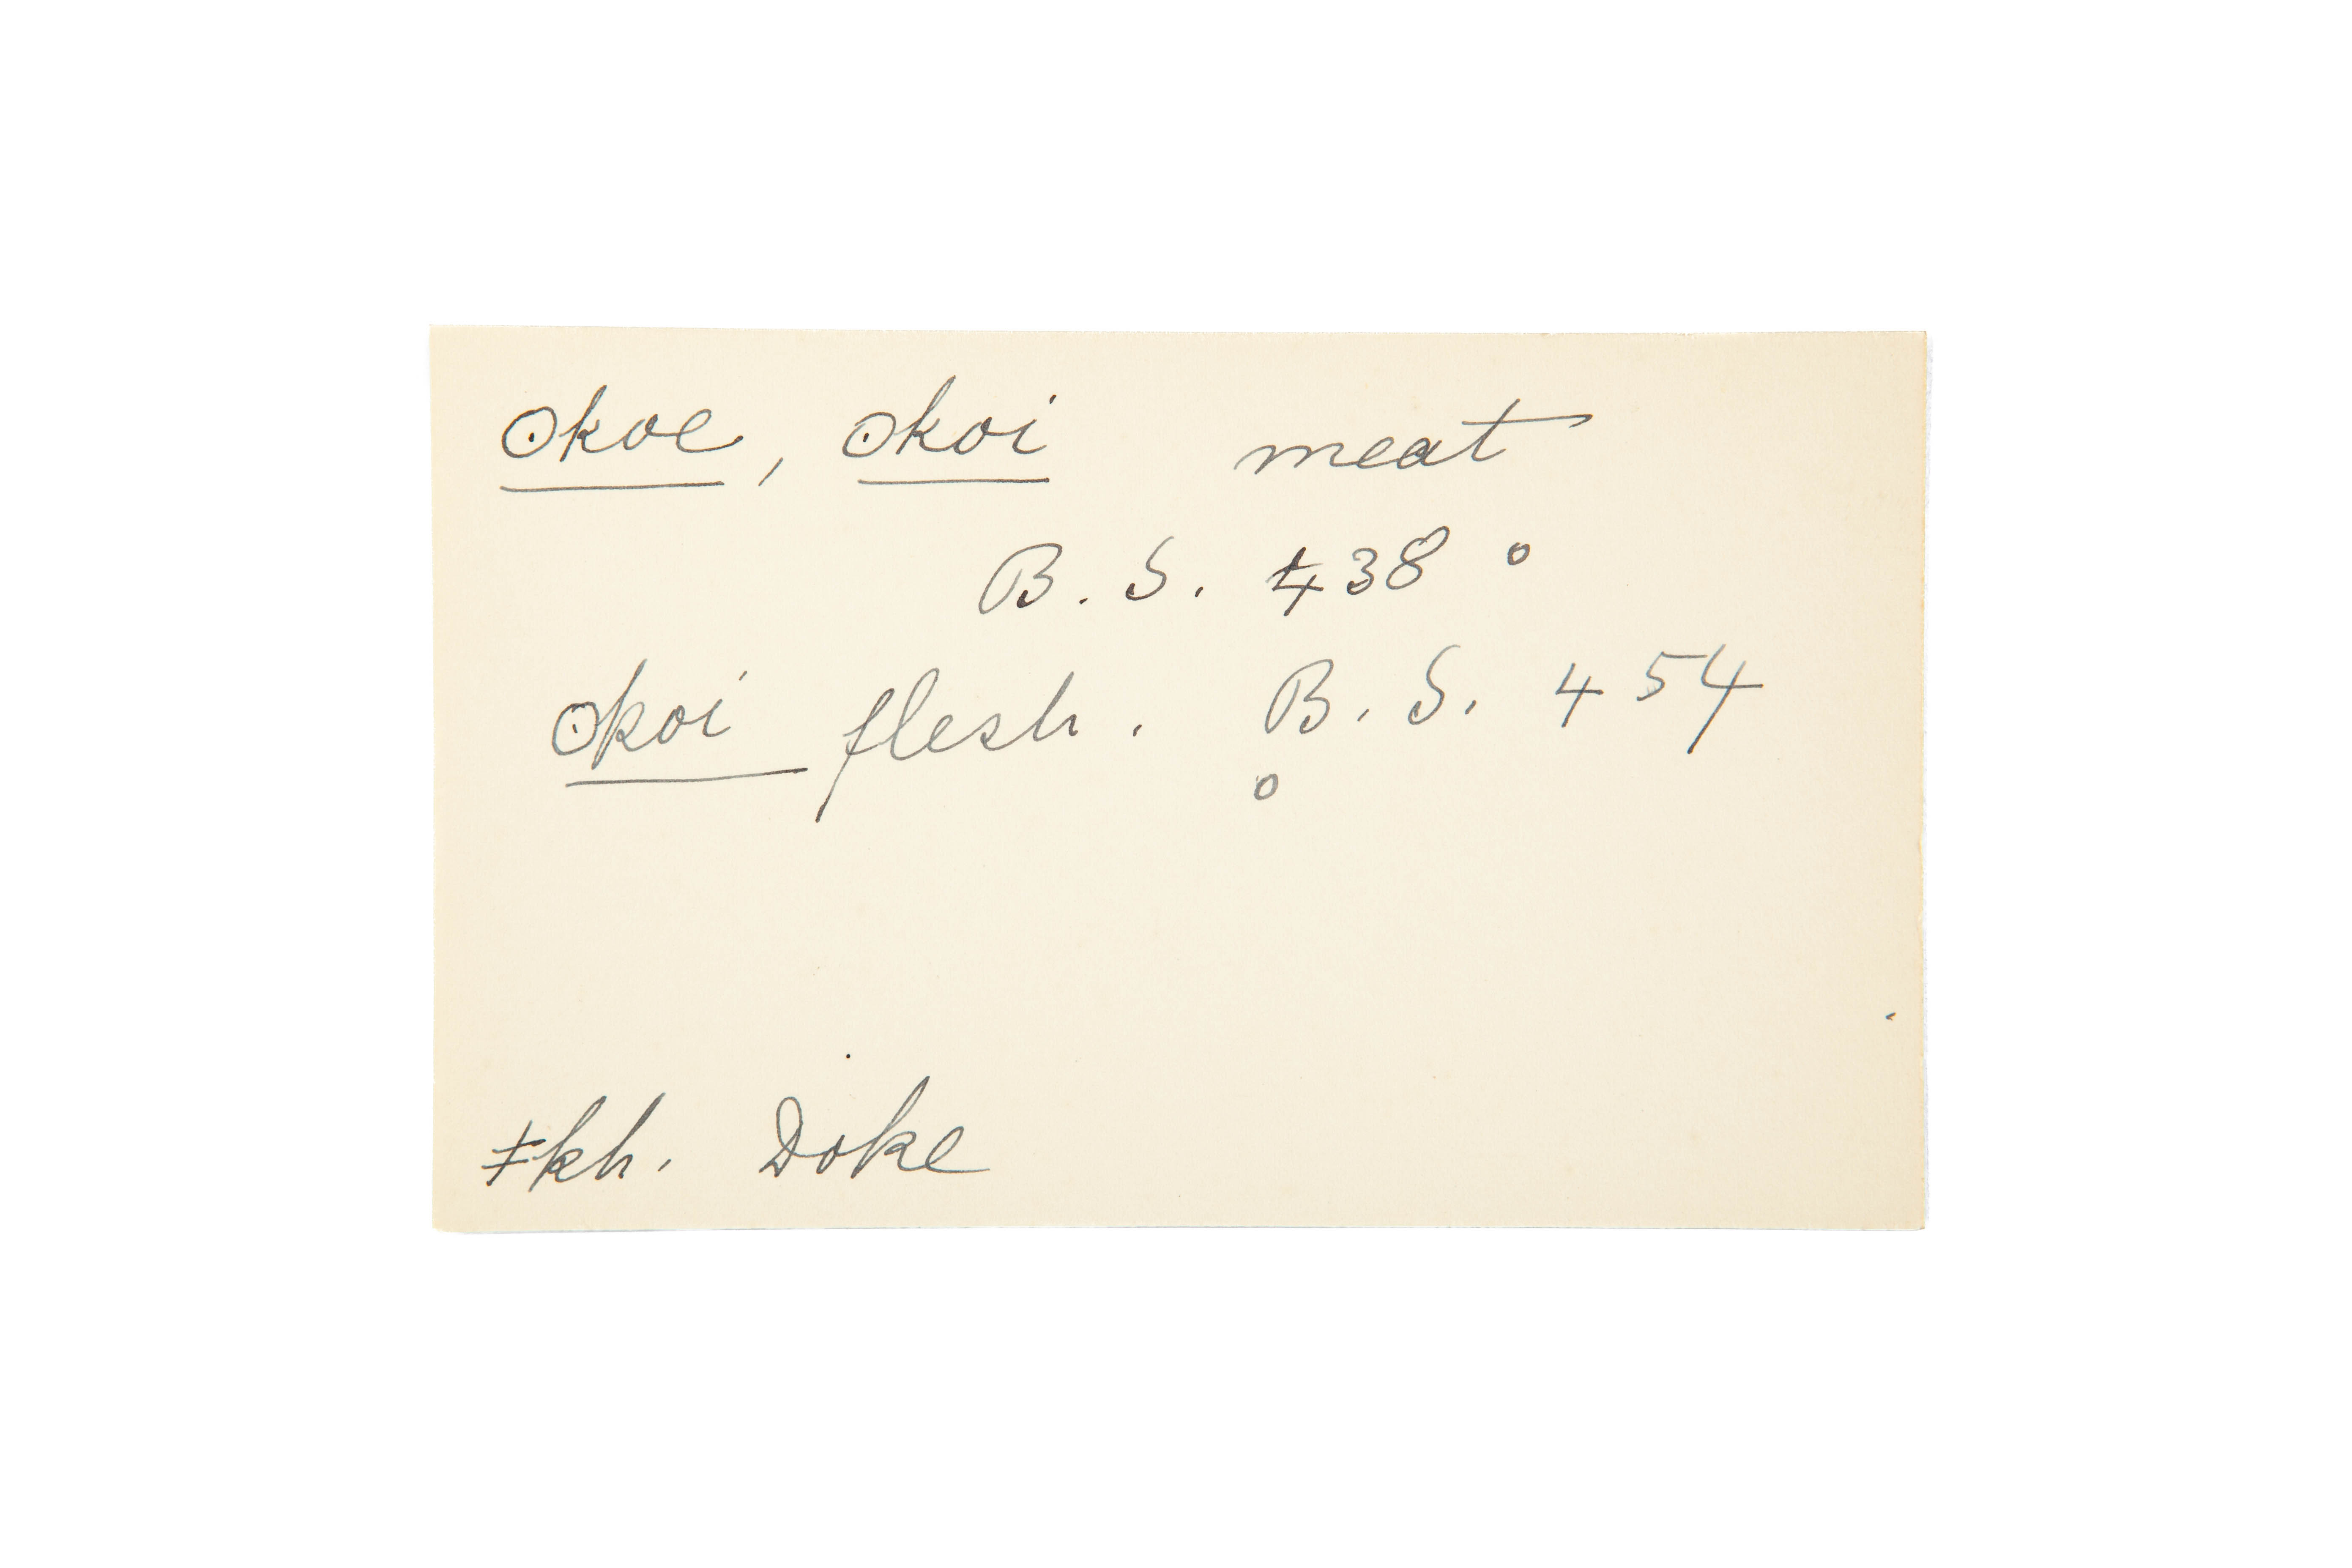 ʘkoe, ʘkoi meat
B. S. 438 o
ʘkoi flesh. B. S. 454
o
ǂkh. Doke